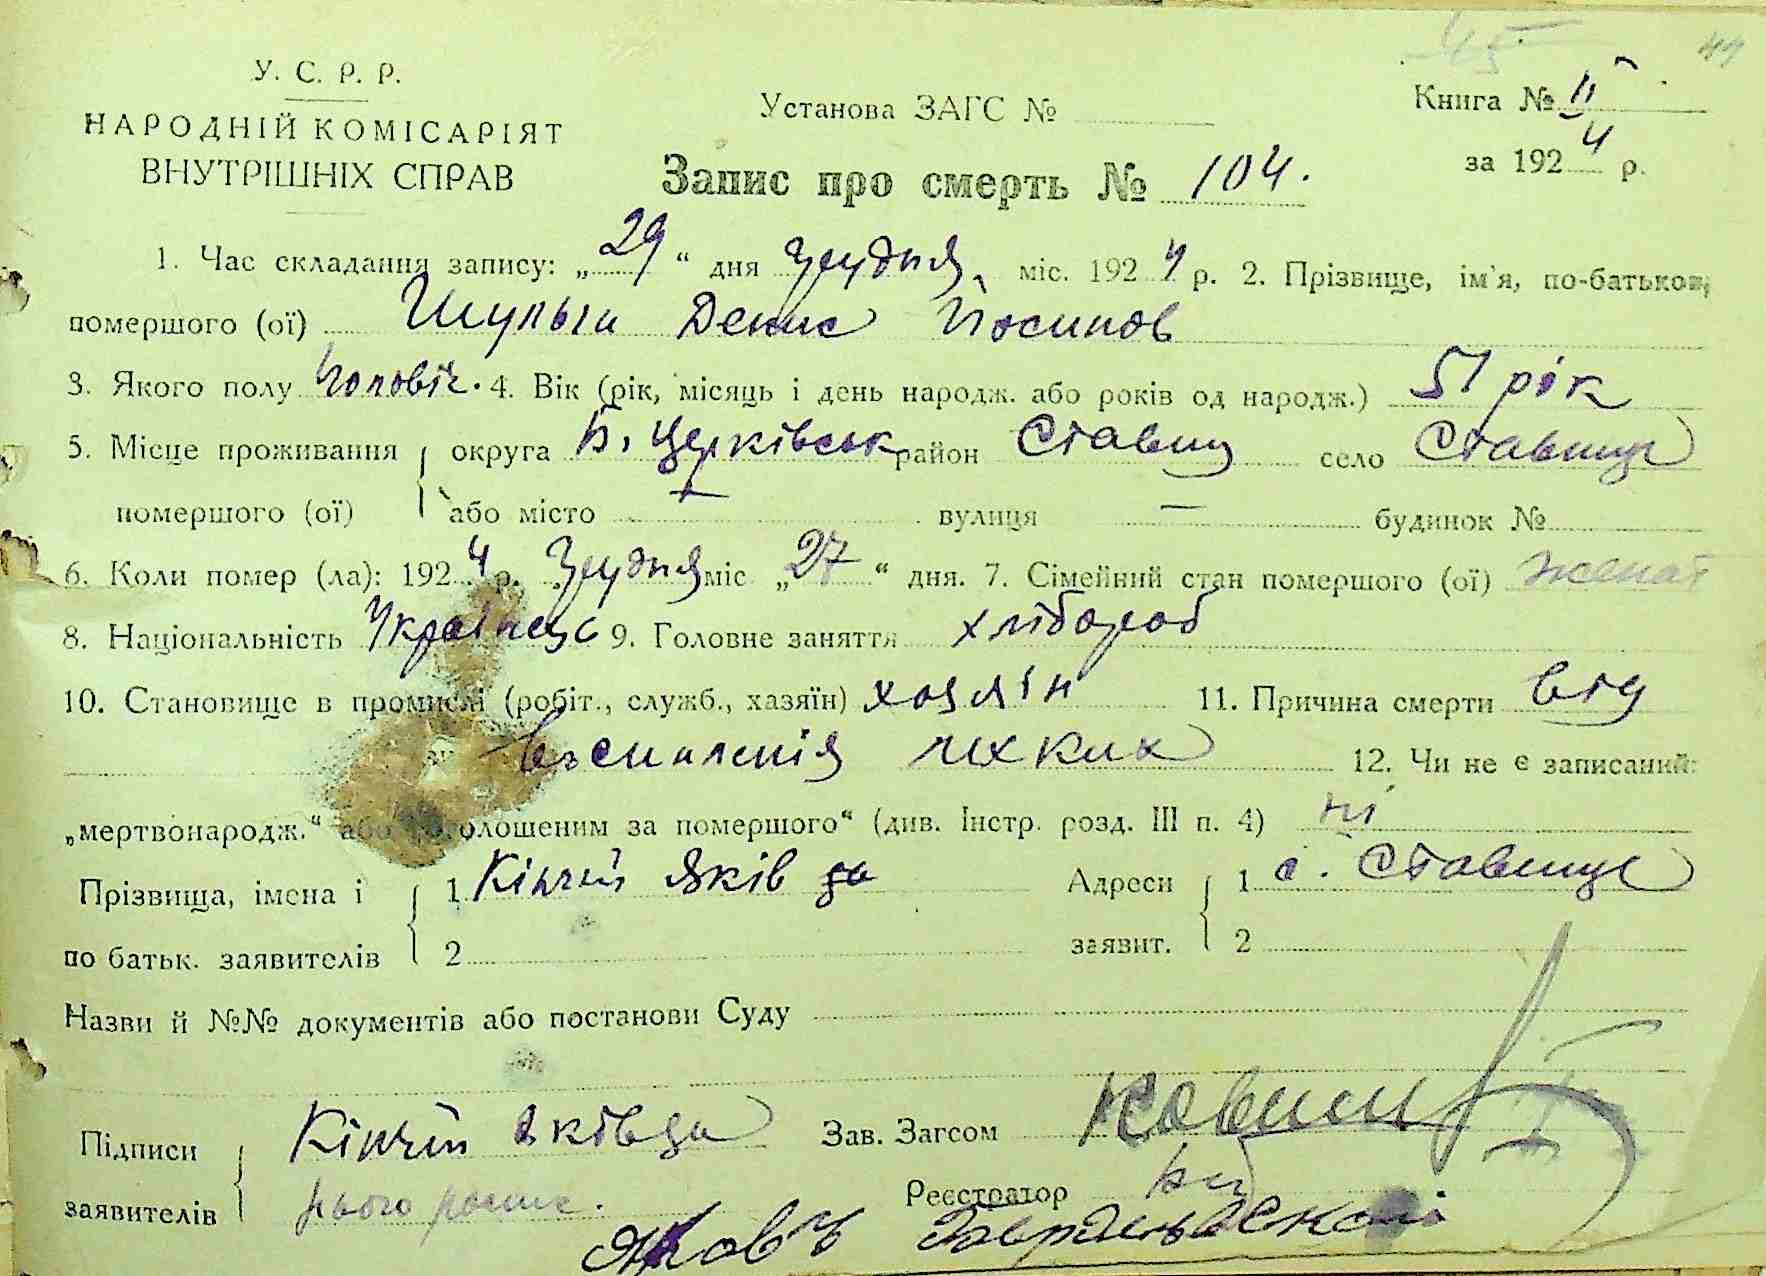 44
У. С. Р. Р.
НАРОДНІЙ КОМІСАРІЯТ
ВНУТРІШНІХ СПРАВ
Установа ЗАГС №
Книга № II
за 1924 р.
Запис про смерть № 104.
1. Час складання запису: „29“ дня грудня міс. 1924 р. 2. Прізвище, ім'я, по-батькові
помершого (ої) Шульги Денис Йосипов
3. Якого полу Чоловіч. 4. Вік (рік, місяць і день народж. або років од народж.) 51 рік
5. Місце проживання округа Б. Церківськ район Ставищ село Ставище
помершого (ої) або місто — вулиця — будинок №
6. Коли помер (ла): 1924 р. Грудня міс „27“ дня. 7. Сімейний стан помершого (ої) женат
8. Національність Українець 9. Головне заняття хлібороб
10. Становище в промислі (робіт., служб., хазяїн) хозяін 11. Причина смерти від
воспиленія лехких 12. Чи не є записаний:
„мертвонародж.“ або „оголошеним за помершого“ (див. Інстр. розд. III п. 4) ні
Прізвища, імена і 1 Кінчий Яків за Адреси 1 с. Ставище
по батьк. заявителів 2 заявит. 2
Назви й №№ документів або постанови Суду
Підписи Кінчий Яків за Зав. Загсом
заявителів нього роспис. Реєстратор
Яковъ